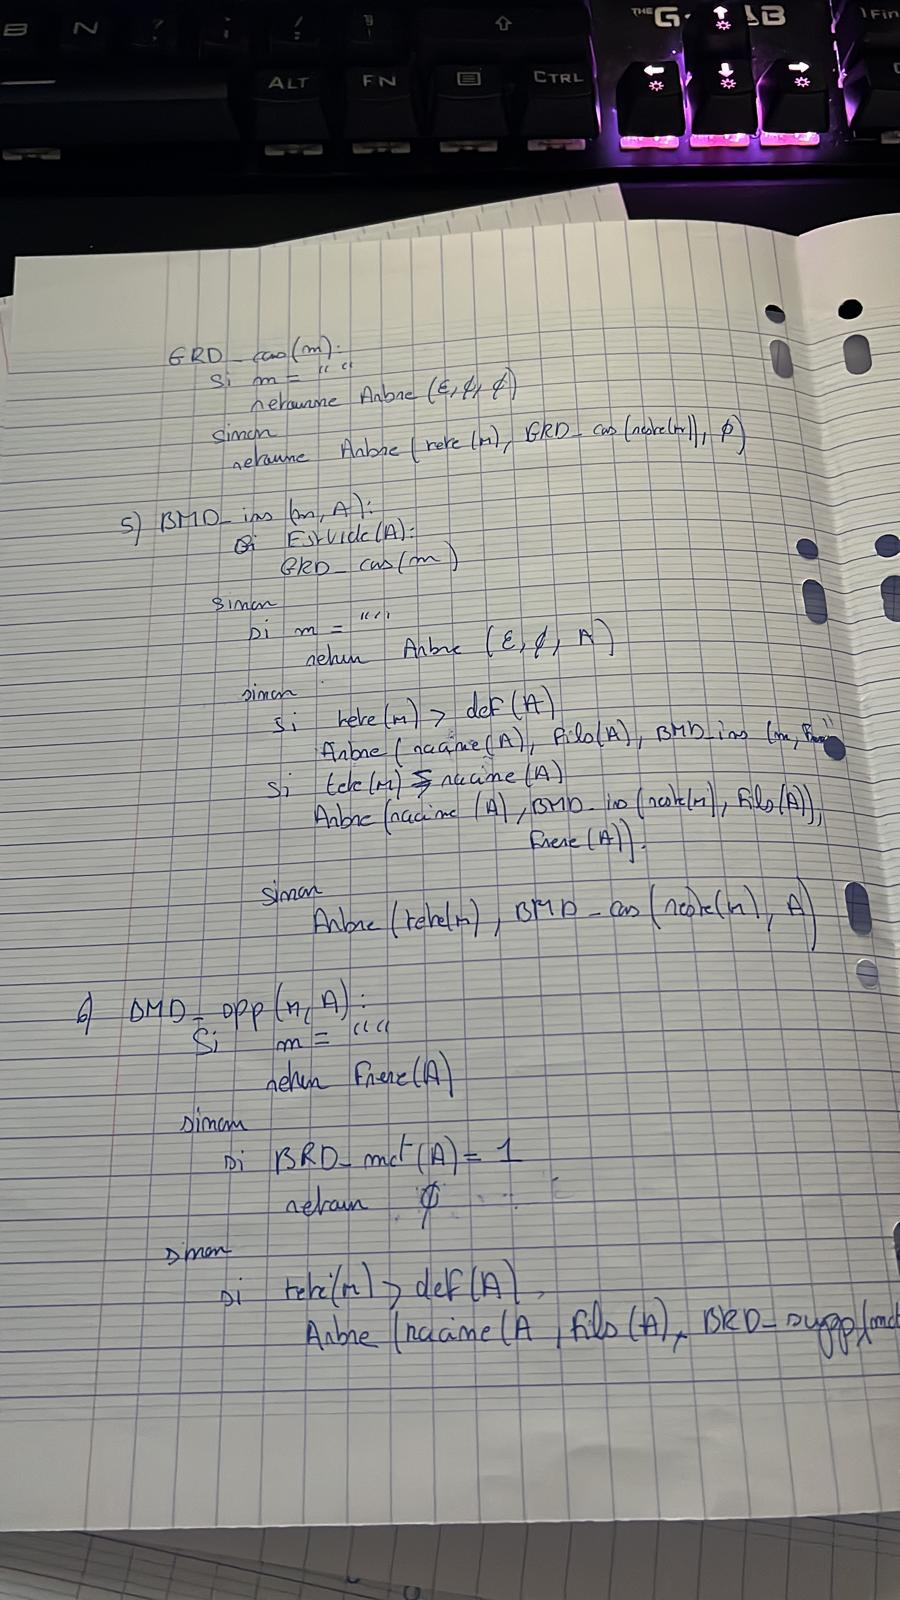 B N ? ; ! §
THE G-LAB
Fin
ALT FN CTRL
GRD_cas(m):
Si m = “ “
retourne Arbre (ε, ∅, ∅)
sinon
retourne Arbre (tete(m), GRD_cas(reste(m)), ∅)
5) BMD_ins (m, A):
Si EstVide(A):
GRD_cas(m)
sinon
Si m = “ “
retun Arbre (ε, ∅, A)
sinon
Si tete(m) > def(A)
Arbre (racine(A), Fils(A), BMD_ins (m,
Si tete(m) = racine(A)
Arbre (racine (A), BMD_ins (reste(m), Fils(A)),
Frere(A)).
sinon
Arbre (tete(m), BMD_cas (reste(m), A)
6) BMD_ (m, A):
Si m = “ “
retun Frere(A)
Sinon
Si BRD_mot(A) = 1
retourn ∅
Sinon
Si tete(m) > def(A)
Arbre (racine(A, Fils(A), BRD_supp(mot